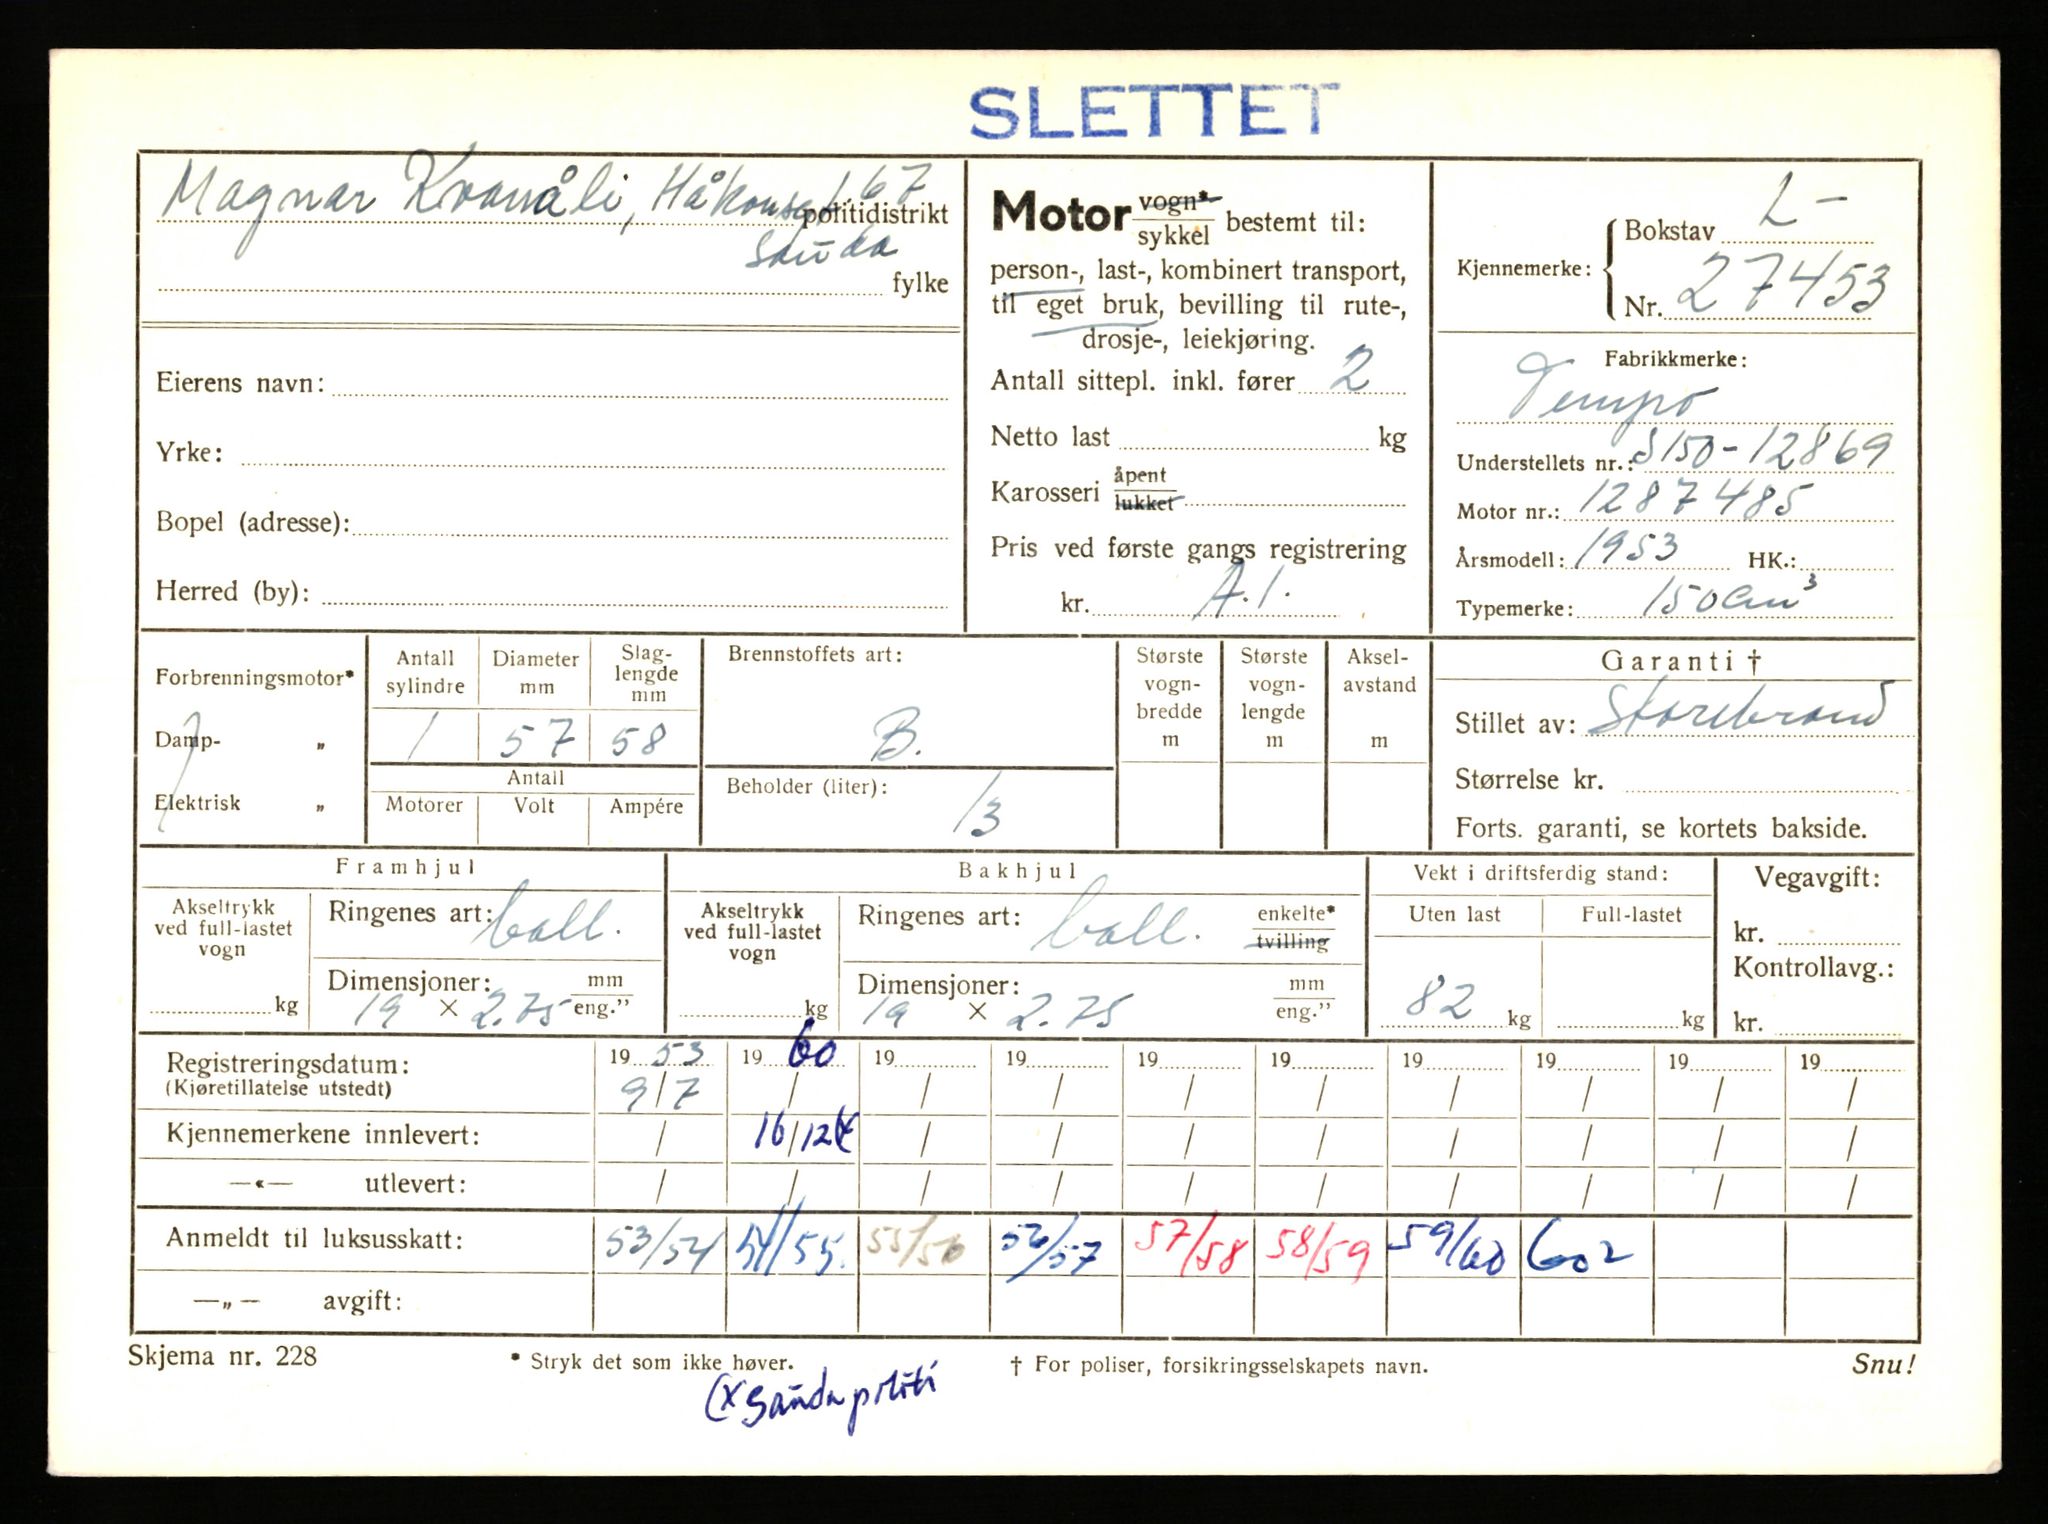 SLETTET
Magnar Kvanåli, Håkonsgt. 67
politidistrikt
Sauda
fylke
Eierens navn:
Yrke:
Bopel (adresse):
Herred (by):
Motor vogn* sykkel bestemt til:
person-, last-, kombinert transport,
til eget bruk, bevilling til rute-,
drosje-, leiekjøring.
Antall sittepl. inkl. fører 2
Netto last kg
Karosseri åpent lukket
Pris ved første gangs registrering
kr. A.1.
Kjennemerke: Bokstav L-
Nr. 27453
Fabrikkmerke:
Tempo
Understellets nr.: S150-12869
Motor nr.: 1287485
Årsmodell: 1953 HK.:
Typemerke: 150 cm³
Forbrenningsmotor*
Damp- „
Elektrisk „
Antall sylindre 1
Diameter mm 57
Slaglengde mm 58
Antall
Motorer Volt Ampére
Brennstoffets art:
B.
Beholder (liter):
13
Største vognbredde m
Største vognlengde m
Akselavstand m
Garanti †
Stillet av: Storebrand
Størrelse kr.
Forts. garanti, se kortets bakside.
Framhjul
Akseltrykk ved full-lastet vogn
kg
Ringenes art: ball.
Dimensjoner: mm
19 × 2.75 eng.”
Bakhjul
Akseltrykk ved full-lastet vogn
kg
Ringenes art: ball. enkelte* tvilling
Dimensjoner: mm
19 × 2.75 eng.”
Vekt i driftsferdig stand:
Uten last Full-lastet
82 kg kg
Vegavgift:
kr.
Kontrollavg.:
kr.
Registreringsdatum: 1953 1960 19 19 19 19 19 19 19 19
(Kjøretillatelse utstedt) 9/7 / / / / / / / / /
Kjennemerkene innlevert: / 16/12 (x / / / / / / / /
—«— utlevert: / / / / / / / / / /
Anmeldt til luksusskatt: 53/54 54/55. 55/56 56/57 57/58 58/59 59/60 602
—„— avgift:
Skjema nr. 228 * Stryk det som ikke høver. † For poliser, forsikringsselskapets navn. Snu!
(x Sauda politi